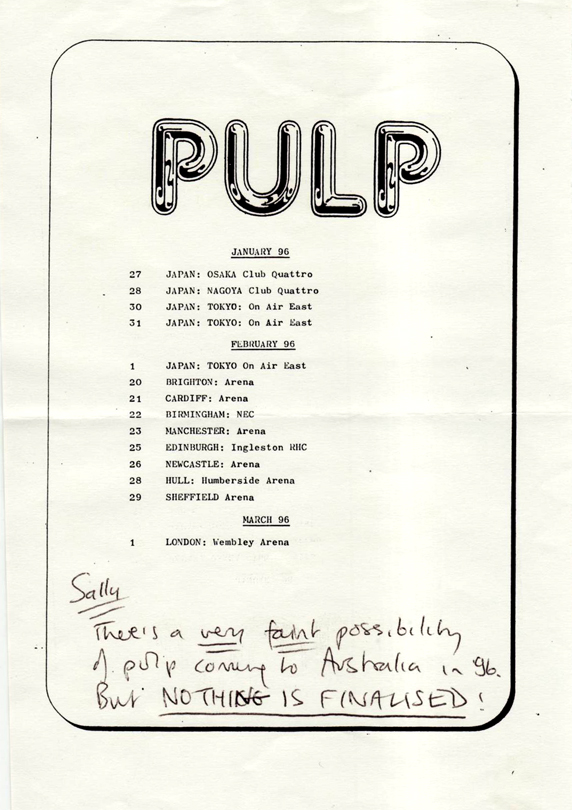 PULP
JANUARY 96
27 JAPAN: OSAKA Club Quattro
28 JAPAN: NAGOYA Club Quattro
30 JAPAN: TOKYO: On Air East
31 JAPAN: TOKYO: On Air East
FEBRUARY 96
1 JAPAN: TOKYO On Air East
20 BRIGHTON: Arena
21 CARDIFF: Arena
22 BIRMINGHAM: NEC
23 MANCHESTER: Arena
25 EDINBURGH: Ingleston RHC
26 NEWCASTLE: Arena
28 HULL: Humberside Arena
29 SHEFFIELD Arena
MARCH 96
1 LONDON: Wembley Arena
Sally
There's a very faint possibility
of pulp coming to Australia in '96.
But NOTHING IS FINALISED!